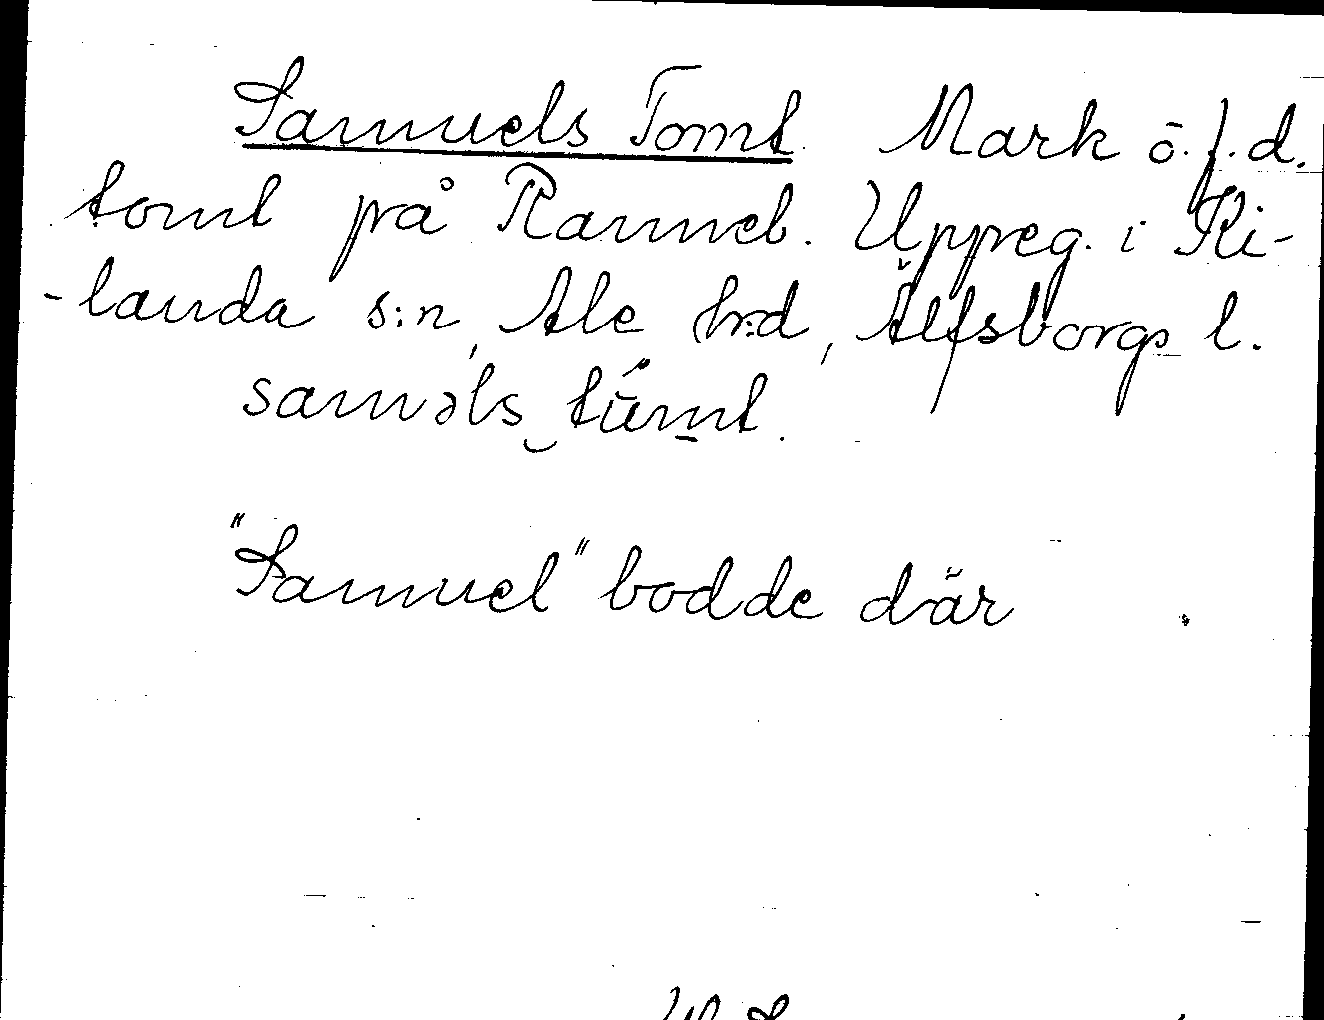 Samuels Tomt. Mark o. f. d.
tomt på Ranneb. Uppreg. i Ki-
-landa s:n, Ale hrd, Älfsborgs l.
saməls tümt.
"Samuel" bodde där